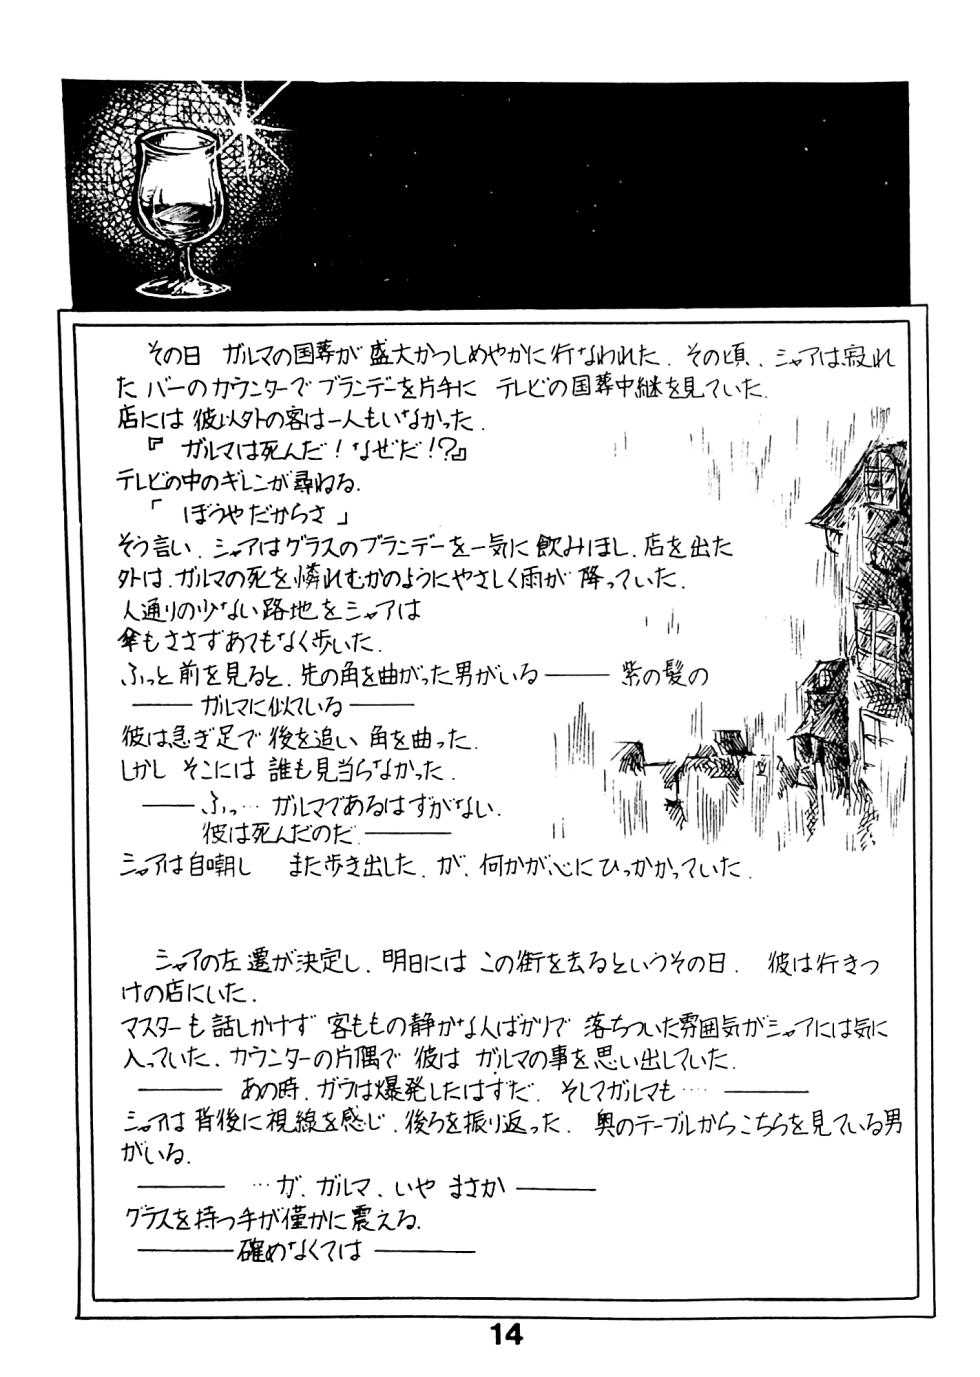 その日 ガルマの国葬が 盛大かつしめやかに行なわれた. その頃、シャアは寂れ
た バーのカウンターで ブランデーを片手に テレビの国葬中継を見ていた.
店には 彼以外の客は一人もいなかった.
『 ガルマは死んだ!なぜだ!?』
テレビの中のギレンが尋ねる.
「 ぼうやだからさ 」
そう言い、シャアはグラスのブランデーを一気に飲みほし、店を出た
外は、ガルマの死を憐れむかのようにやさしく雨が 降っていた.
人通りの少ない路地をシャアは
傘もささずあてもなく歩いた.
ふっと前を見ると、先の角を曲がった男がいる ─── 紫の髪の
─── ガルマに似ている ───
彼は急ぎ足で 後を追い 角を曲った.
しかし そこには 誰も見当らなかった.
─── ふっ… ガルマであるはずがない.
彼は死んだのだ ───
シャアは自嘲し また歩き出した. が、何かが心にひっかかっていた.
シャアの左遷が決定し、明日には この街を去るというその日. 彼は行きつ
けの店にいた.
マスターも話しかけず 客ももの静かな人ばかりで 落ちついた雰囲気がシャアには気に
入っていた. カウンターの片隅で 彼は ガルマの事を思い出していた.
─── あの時、ガウは爆発したはずだ. そしてガルマも… ───
シャアは背後に視線を感じ、後ろを振り返った. 奥のテーブルからこちらを見ている男
がいる.
─── …ガ、ガルマ、いや まさか ───
グラスを持つ手が僅かに震える.
─── 確めなくては ───
14